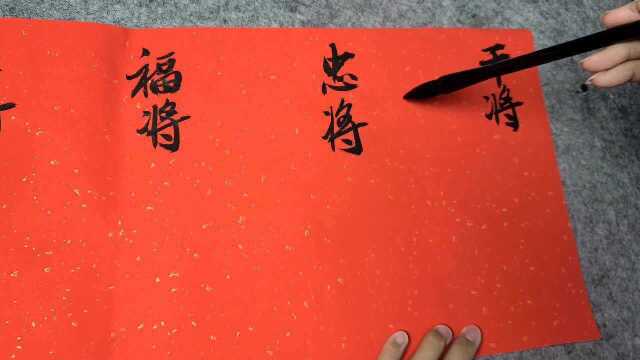 干将
忠将
福将